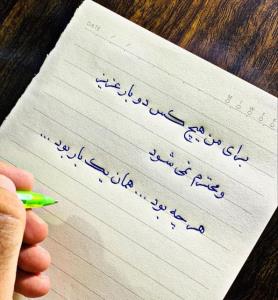 DATE / /
برای من هیچ کس دو بار عزیز
و محترم نمی شود
هر چه بود ... همان یک بار بود ...